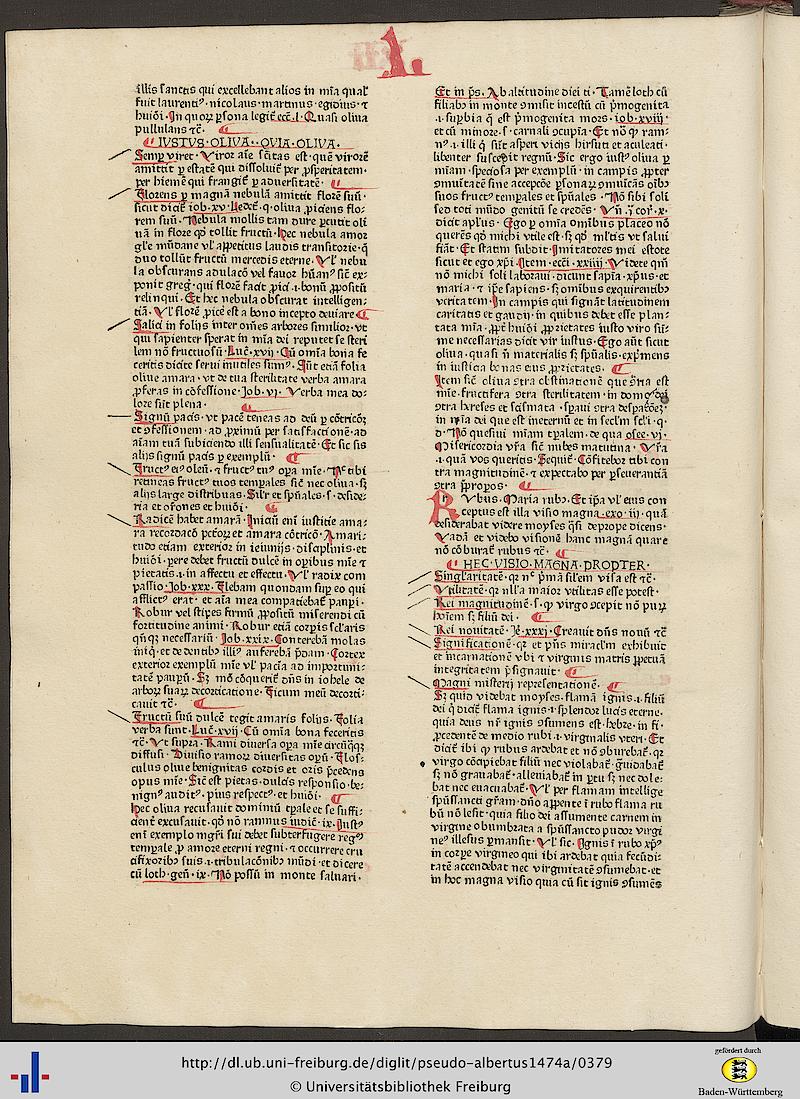 illis sanctis qui excellebant alios in mīa qual'
fuit laurentiꝰ·nicolaus·martinus·egidius·⁊
huiōi·In quoꝝ ꝑsona legit̄ eccl̄·l·Quasi oliua
pullulans ⁊c̄·
IVSTVS·OLIVA·QVIA·OLIVA·
Semꝑ viret·Viror aīe sc̄itas est·quē virorē
amittit ꝑ estatē qui dissoluit̄ per ꝓsperitatem·
per hiemē qui frangit̄ ꝑ aduersitatē·
Florens ꝑ magnā nebulā amittit florē suū·
sicut dicit̄ iob·xv·
rem suū·Nebula mollis tam dure ꝑcutit oli
uā in flore qd̄ tollit fructū·Hec nebula amor
gl'e mūdane vl' appetitus laudis transitorie·q̄
duo tollūt fructū mercedis eterne·Vl' nebu
la obscurans adulacō vel fauor hūanꝰ sic̄ ex-
ponit greḡ·qui florē facit ꝓici·i·bonū ꝓpositū
relinqui·Et hec nebula obscurat intelligen-
tiā·Vl' florē ꝓicit est a bono incepto deuiare
Salici in folijs inter om̄es arbores similior·vt
qui sapienter sperat in mīa dei reputet se steri
lem nō fructuosū·Luc̄·xvij·Cū om̄ia bona fe
ceritis dicite serui inutiles sumꝰ·Sūt etiā folia
oliue amara·vt de tua sterilitate verba amara
ꝓferas in cōfessione·Job·vj·Verba mea do-
lore sūt plena·
Signū pacis·vt pacē teneas ad deū ꝑ cōtricōꝫ
et ꝯfessionem·ad ꝓximū per satisfactionē·ad
aīam tuā subiciendo illi sensualitatē·Et sic sis
alijs signū pacis ꝑ exemplū·
Fructꝰ eiꝰ oleū·⁊ fructꝰ tuꝰ oꝑa mīe·Nē tibi
retineas fructꝰ tuos tempales sic̄ nec oliua·sꝫ
alijs large distribuas·Sil'r et sp̄uales·s·deside-
ria et ōfones et huiōi·
Radicē habet amarā·Iniciū enī iusticie ama-
ra recordacō pctōꝝ et amara cōtricō·Amari-
tudo etiam exterior in ieiunijs·disciplinis·et
huiōi·pere debet fructū dulcē in oꝑibus mīe ⁊
pietatis·i·in affectu et effectu·Vl' radix com
passio·Job·xxx·Flebam quondam suꝑ eo qui
afflictꝰ erat·et aīa mea compatiebat̄ pauꝑi·
Robur vel stipes firmū ꝓpositū miserendi cū
fortitudine animi·Robur etiā corpis sclaris
qn̄qꝫ necessariū·Job·xxix·Conterebā molas
iniqꝰ·et de dentibꝰ illiꝰ auferebā ꝑdam·Cortex
exterior exemplū mīe vl' pacīa ad importuni-
tatē pauꝑū·Sꝫ mō cōquerit̄ dn̄s in iohele de
arboꝝ suaꝝ decorticatione·Ficum meū decorti-
cauit ⁊c̄·
Fructū suū dulcē tegit amaris folijs·Folia
verba sunt·Luc̄·xvij·Cū om̄ia bona feceritis
⁊c̄·Vt supra·Rami diuersa oꝑa mīe circūqꝫqꝫ
diffusi·Diuisio ramoꝝ diuersitas oꝑū·Flos-
culus oliue benignitas cordis et oris ꝓcedens
opus mīe·Sic̄ est pietas·dulcis responsio·be-
nignꝰ auditꝰ·pius respectꝰ·et huiōi·
Hec oliua recusauit dominiū tp̄ale et se suffi-
cient̄ excusauit·qd̄ nō ramnus iudic̄·ix·Iustꝰ
enī exemplo mgr̄i sui debet subterfugere regꝰ
tempale ꝓ amore eterni regni·⁊ occurrere cru
cifixoribꝰ suis·i·tribulacōnibꝰ mūdi·et dicere
cū loth·gen̄·ix·Nō possū in monte saluari·
Et in ps̄·Ab altitudine diei ti·Tamē loth cū
filiabꝰ in monte ꝯmisit incestū cū p̄mogenita
·i·suꝑbia q̄ est p̄mogenita mors·iob·xviij·
et cū minore·s·carnali ꝯcupīa·Et nō qꝫ ram-
nꝰ·i·illi q̄ sūt asperi vicijs hirsuti et aculeati·
libenter suscepit regnū·Sic ergo iustꝰ oliua ꝑ
mīam·speciosa per exemplū·in campis ꝓpter
ꝯmuitatē sine accepcōe ꝑsonaꝝ ꝯmuicās oībꝰ
suos fructꝰ tempales et sp̄uales·Nō sibi soli
sed toti mūdo genitū se credēs·Vn̄·j·cor̄·x·
dicit apl'us·Ego ꝑ om̄ia om̄ibus placeo nō
querēs qd̄ michi vtile est·sꝫ qd̄ ml'tis vt salui
fiāt·Et statim subdit·Imitatores mei estote
sicut et ego xp̄i·Item·ecc̄i·xxiiij·Videte qm̄
nō michi soli laboraui·dicunt sapīa·xp̄us·et
maria·⁊ ip̄e sapiens·sꝫ omībus exquirentibꝰ
veritatem·In campis qui signāt latitudinem
caritatis et gaudij·in quibus debet esse plan-
tata mīa·ꝓpt̄ huiōi ꝓprietates iusto viro sūt
me necessarias dicit vir iustus·Ego aūt sicut
oliua·quasi n̄ materialis sꝫ sp̄ualis·exp̄mens
in iusticia bonas eius ꝓprietates·
Item sic̄ oliua ꝯtra obstinationē que ꝯ̄ria est
mīe·fructifera ꝯtra sterilitatem·in domo dei
ꝯtra hereses et scismata·speraui ꝯtra despacōeꝫ·
in mīa dei que est ineternū et in secl'm scl'i·q·
d·Nō quesiui mīam tp̄alem·de qua osee·vj·
Misericordia vr̄a sic̄ nubes matutina·Vr̄a
·i·quā vos queritis·Sequit̄·Cōfitebor tibi con
tra magnitudinē·⁊ expectabo per ꝑseuerantiā
ꝯtra ꝓpropos·
Rvbus·Maria rubꝰ·Et ip̄a vl' eius con
ceptus est illa visio magna·exo·iij·quā
desiderabat videre moyses q̄si de prope dicens·
Vadā et videbo visionē hanc magnā quare
nō cōburat̄ rubus ⁊c̄·
HEC·VISIO·MAGNA·PROPTER·
Singl'aritatē·qꝫ nꝰ p̄ma sil'em visa est ⁊c̄·
Vtilitatē·qꝫ nll'a maior vtilitas esse potest·
Rei magnitudinē·s·qꝫ virgo ꝯcepit nō puꝝ
hoīem sꝫ filiū dei·
Rei nouitatē·Je·xxxj·Creauit dn̄s nouū ⁊c̄
Significationē·qꝫ et p̄ns miracl'm exhibuit
et incarnationē vbi ⁊ virginis matris ꝑpetuā
integritatem p̄signauit·
Magni misterij representationē·
Sꝫ quid videbat moyses·flamā ignis·i·filiū
dei q̄ dicit̄ flama ignis·i·splendor lucis eterne·
quia deus nr̄ ignis ꝯsumens est·hebre·in fi·
ꝓcedentē de medio rubi·i·virginalis vteri·Et
dicit̄ ibi qꝫ rubus ardebat et nō ꝯburebat̄·qꝫ
virgo cōcipiebat filiū nec violabat̄·grauidabat̄
sꝫ nō grauabat̄·alleuiabat̄ in ꝑtu sꝫ nec dole-
bat nec euacuabat̄·Vl' per flamam intellige
sp̄ussancti gr̄am·dn̄o appente ī rubo flama ru
bū nō lesit·quia filio dei assumente carnem in
virgine obumbrata a sp̄ussancto pudor virgi
neꝰ illesus ꝑmansit·Vl' sic·Ignis ī rubo xp̄ꝰ
in corꝑe virgineo qui ibi ardebat quia fecūdi-
tatē accendebat nec virginitatē ꝯsumebat·et
in hoc magna visio quia cū sit ignis ꝯsumēs
http://dl.ub.uni-freiburg.de/diglit/pseudo-albertus1474a/0379
© Universitätsbibliothek Freiburg
gefördert durch
Baden-Württemberg